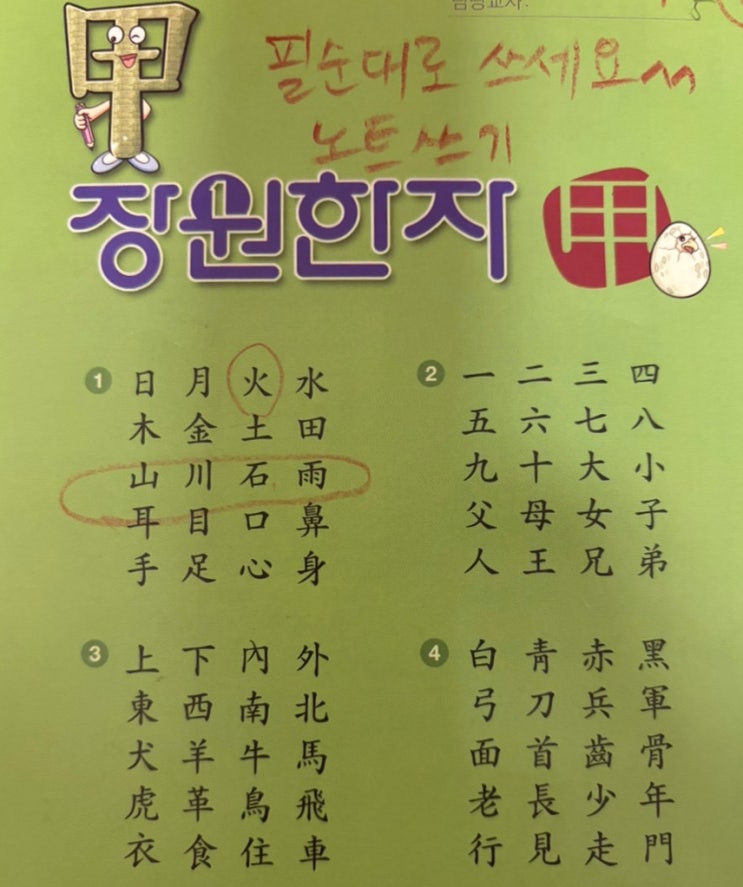 담당교사:
필순대로 쓰세요^^
노트쓰기
장원한자 甲
1 日 月 火 水
木 金 土 田
山 川 石 雨
耳 目 口 鼻
手 足 心 身
2 一 二 三 四
五 六 七 八
九 十 大 小
父 母 女 子
人 王 兄 弟
3 上 下 內 外
東 西 南 北
犬 羊 牛 馬
虎 革 鳥 飛
衣 食 住 車
4 白 靑 赤 黑
弓 刀 兵 軍
面 首 齒 骨
老 長 少 年
行 見 走 門